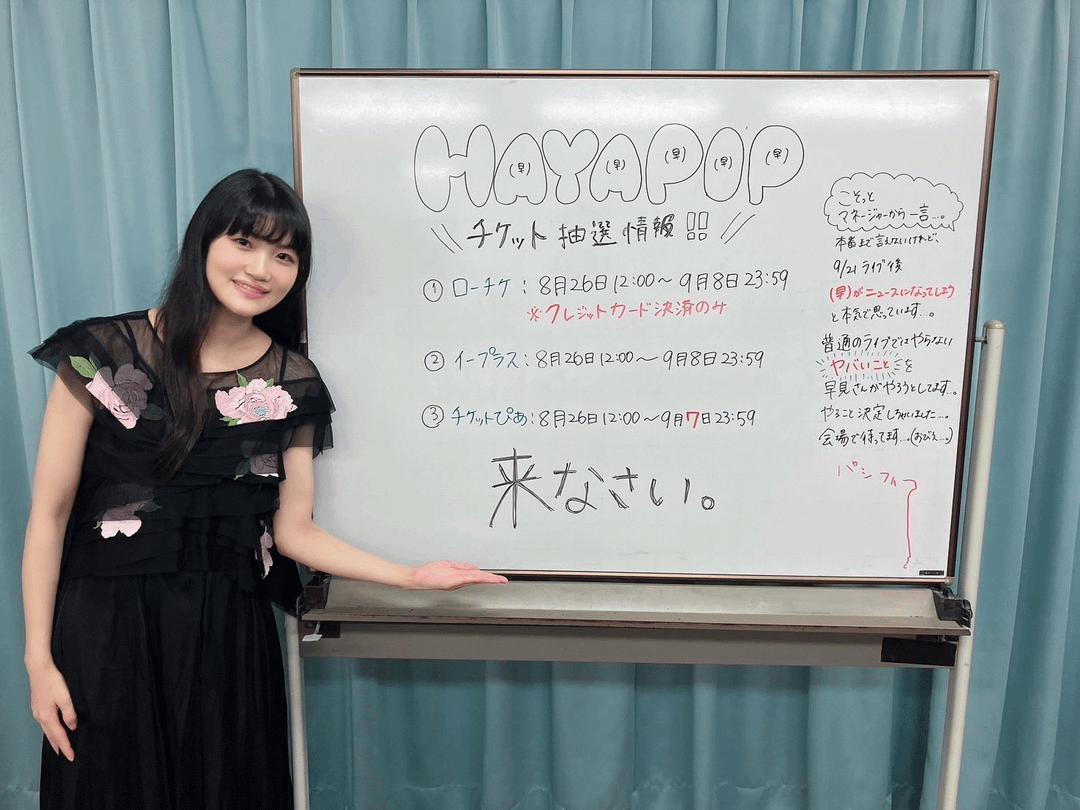 HAYAPOP
(早) (早) (早) (早) (早)
チケット抽選情報!!
① ローチケ：8月26日12:00～9月8日23:59
※クレジットカード決済のみ
② イープラス：8月26日12:00～9月8日23:59
③ チケットぴあ：8月26日12:00～9月7日23:59
来なさい。
こそっと
マネージャーから一言…。
本番まで言えないけれど、
9/21 ライブ後
(早)がニュースになってしまう
と本気で思っています…。
普通のライブではやらない
ヤバいことを
早見さんがやろうとしてます。
やること決定しちゃいました…。
会場で待ってます…。(おびえ…。)